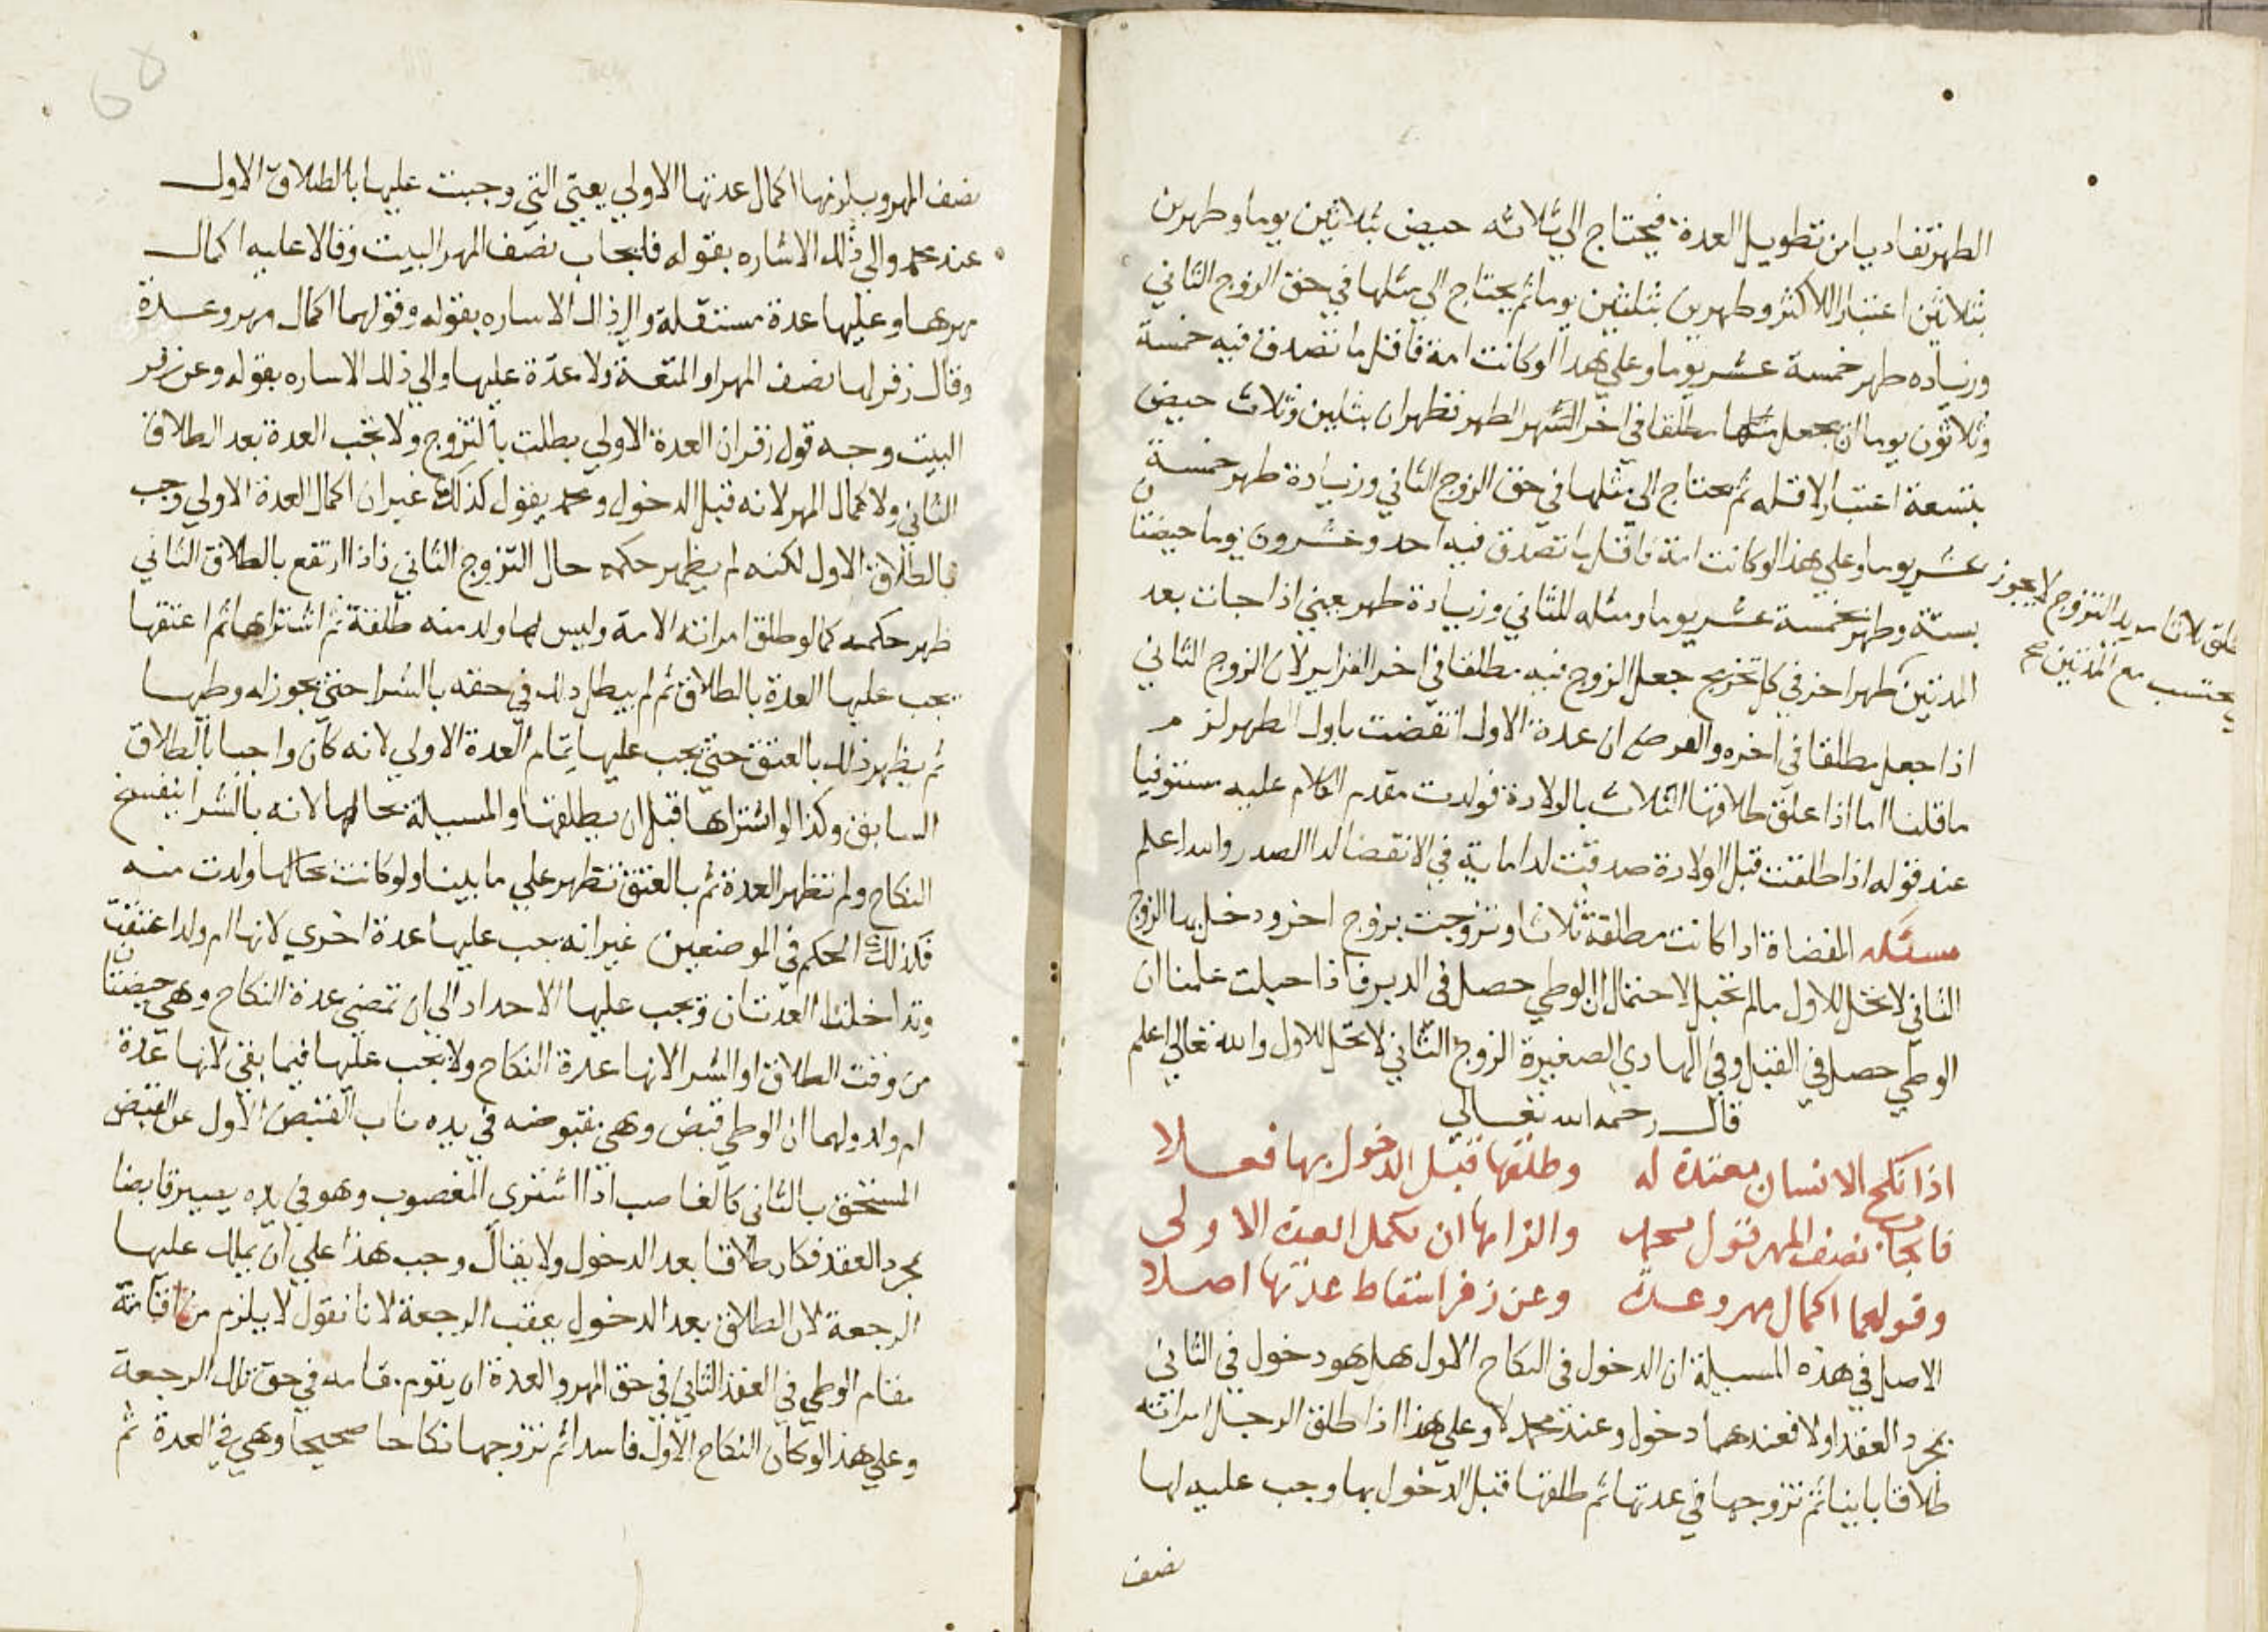 الطهر تفاديا من تطويل العدة فيحتاج الي ثلاثه حيض بثلاثين يوما وطهرين
بثلاثين اعتبارا للاكثر وطهرين بثلثين يوما ثم يحتاج الي مثلها في حق الزوج الثاني
وزياده طهر خمسة عشر يوما وعلي هذا لو كانت امة فاقل ما تصدق فيه خمسة
وثلاثون يوما ان يجعل مطلقا في اخر الشهر الطهر فطهران بثلثين وثلاث حيض
بتسعة اعتبارا لاقله ثم تحتاج الي مثلها في حق الزوج الثاني وزيادة طهر خمسة
عشر يوما وعلي هذا لو كانت امة فاقل ما تصدق فيه احد وعشرون يوما حيضتان
بستة وطهر بخمسة عشر يوما ومثله للثاني وزيادة طهر يعني اذا جات بعد
المدتين طهرا اخر في كل تخريج جعل الزوج فيه مطلقا في اخر لان الزوج الثاني
اذا جعل مطلقا في اخره والفرض ان عدة الاول انقضت باول الطهر لزم
ما قلنا اما اذا علق طلاقها الثلاث بالولادة فولدت تقدم الكلام عليه مستوفيا
عند قوله اذا طلقت قبل الولادة صدقت لدا ماية في الانقضا لدا الصدر والله اعلم
مسئله المفضاة اذا كانت مطلقة ثلاثا وتزوجت بزوج اخر ودخل بها الزوج
الثاني لا تحل للاول مالم تحبل لاحتمال ان الوطي حصل في الدبر فاذا حبلت علمنا ان
الوطي حصل في القبل وفي الهادي الصغيرة الزوج الثاني لا تحل للاول والله تعالي اعلم
قال رحمه الله تعالي
اذا نكح الانسان معتدة له وطلقها قبل الدخول بها فعلا
فايجاب نصف المهر قول محمد والزامها ان تكمل العدة الاولي
وقولهما اكمال مهر وعدة وعن زفر اسقاط عدتها اصلا
الاصل في هذه المسيلة ان الدخول في النكاح الاول هل هو دخول في الثاني
بمجرد العقد اولا فعندهما دخول وعند محمد لا وعلي هذا اذا طلق الرجل امراته
طلاقا باينا ثم تزوجها في عدتها ثم طلقها قبل الدخول بها وجب عليه لها
نصف
طلق ثلاثا مريد التزوج لا يجوز
يحتسب مع المدتين صح
نصف المهر ويلزمها اكمال عدتها الاولي يعني التي وجبت عليها بالطلاق الاول
عند محمد والي ذلك الاشاره بقوله فايجاب نصف المهر البيت وقالا عليه اكمال
مهرها وعليها عدة مستقلة والي ذلك الاساره بقوله وقولهما اكمال مهر وعدة
وقال زفر لها نصف المهر او المتعة ولا عدة عليها والي ذلك الاساره بقوله وعن زفر
البيت وجه قول زفر ان العدة الاولي بطلت بالتزوج ولا تجب العدة بعد الطلاق
الثاني ولا كمال المهر لانه قبل الدخول ومحمد يقول كذلك غير ان اكمال العدة الاولي وجب
بالطلاق الاول لكنه لم يظهر حكمه حال التزوج الثاني فاذا ارتفع بالطلاق الثاني
ظهر حكمه كما لو طلق امراته الامة وليس لها ولد منه طلقة ثم اشتراها ثم اعتقها
يجب عليها العدة بالطلاق ثم لم يبطل ذلك في حقه بالشرا حتي يجوز له وطيها
ثم يظهر ذلك بالعتق حتي يجب عليها تمام العدة الاولي لانه كان واجبا بالطلاق
السابق وكذا لو اشتراها قبل ان يطلقها والمسيلة بحالها لانه بالشرا ينفسخ
النكاح ولم تظهر العدة ثم بالعتق تظهر علي ما بينا ولو كانت بحالها ولدت منه
فكذلك الحكم في الموضعين غير انه يجب عليها عدة اخري لانها ام ولد اعتقت
وتداخلتا العدتان ويجب عليها الاحداد الي ان تمضي عدة النكاح وهي حيضتان
من وقت الطلاق او الشرا لانها عدة النكاح ولا يجب عليها فيما بقي لانها عدة
ام ولد ولهما ان الوطي قبض وهي مقبوضه في يده ناب القبض الاول عن القبض
المستحق بالثاني كالغاصب اذا اشتري المغصوب وهو في يده يصير قابضا
بمجرد العقد فكان طلاقا بعد الدخول ولا يقال وجب هذا علي ان يملك عليها
الرجعة لان الطلاق بعد الدخول يعقب الرجعة لانا نقول لا يلزم من اقامة
مقام الوطي في العقد الثاني في حق المهر والعدة ان يقوم مقامه في حق تلك الرجعة
وعلي هذا لو كان النكاح الاول فاسدا ثم تزوجها نكاحا صحيحا وهي في العدة ثم